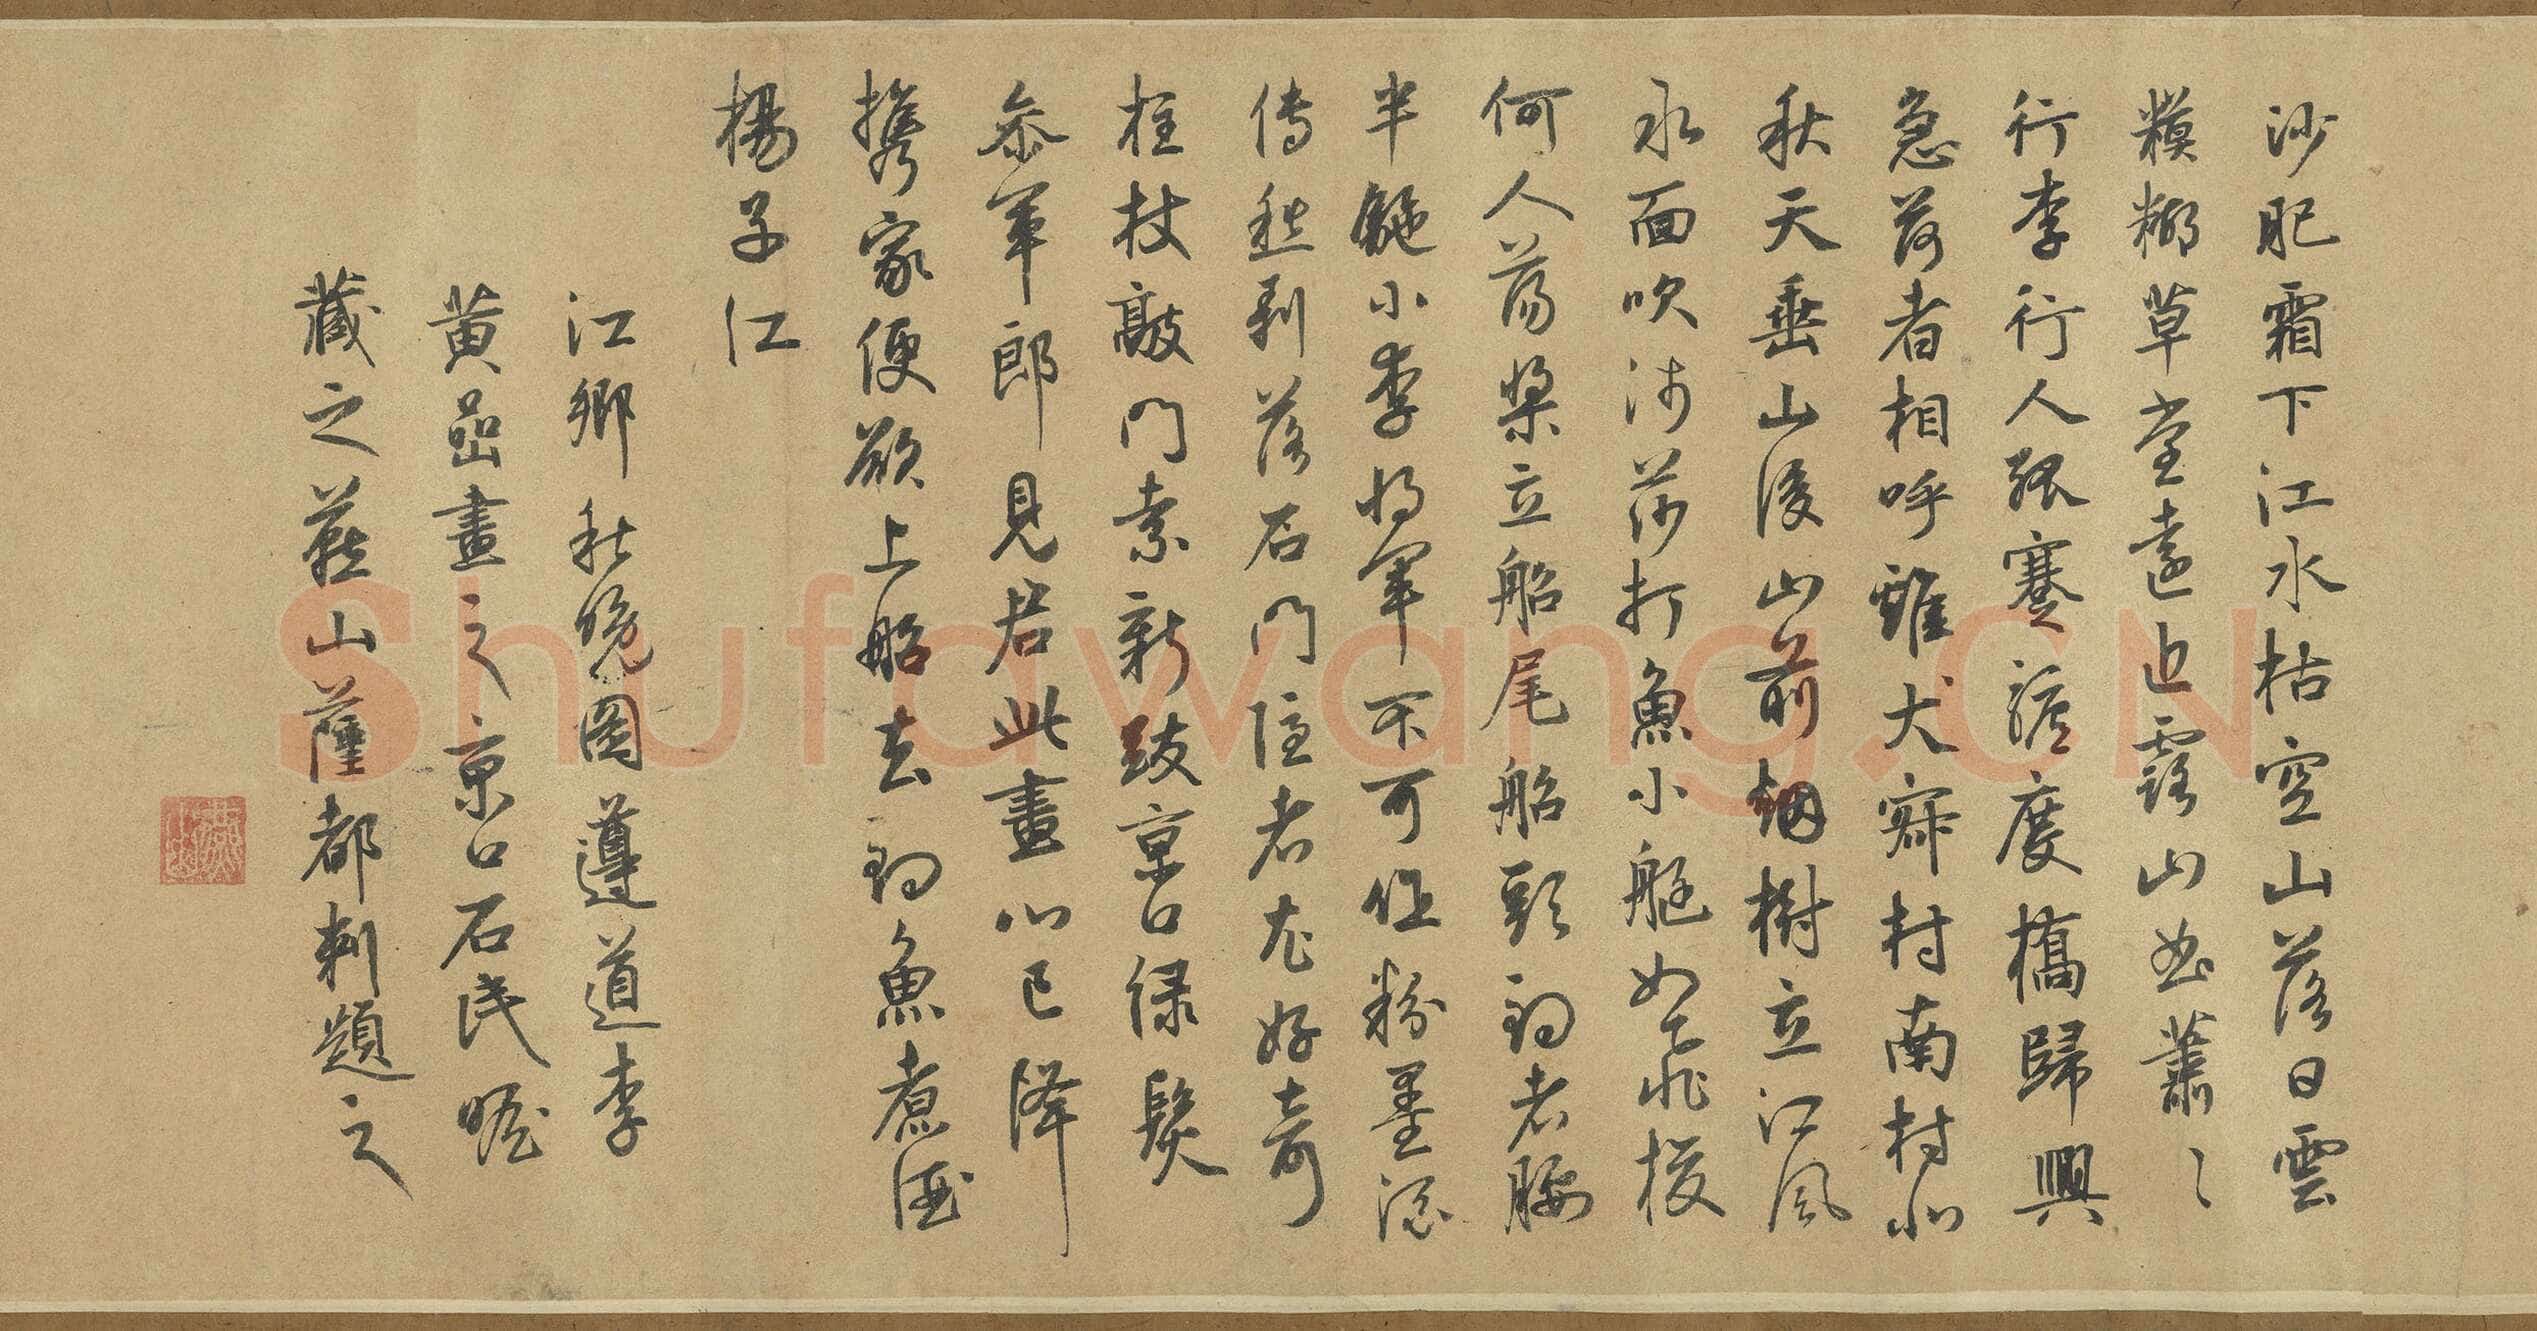 沙肥霜下江水枯空山落日雲
糢糊草堂遠近露山出蕭〻
行李行人孤蹇驢度橋歸興
急荷者相呼雞犬寂村南村北
秋天垂山後山前烟樹立江風
水面吹沙莎打魚小艇如飛梭
何人蕩槳立船尾船頭釣者腰
半鞁小李將軍不可作粉墨
傳愁剥落石門隱者尤好奇
拄杖敲門索新跋京口綠髮
叅軍郎見君此畫心已降
携家便欲上船去釣魚煮酒
楊子江
江鄉秋晚圖遵道李
黃嵓畫之京口石民瞻
藏之燕山薩都剌題之
Shufawang.CN